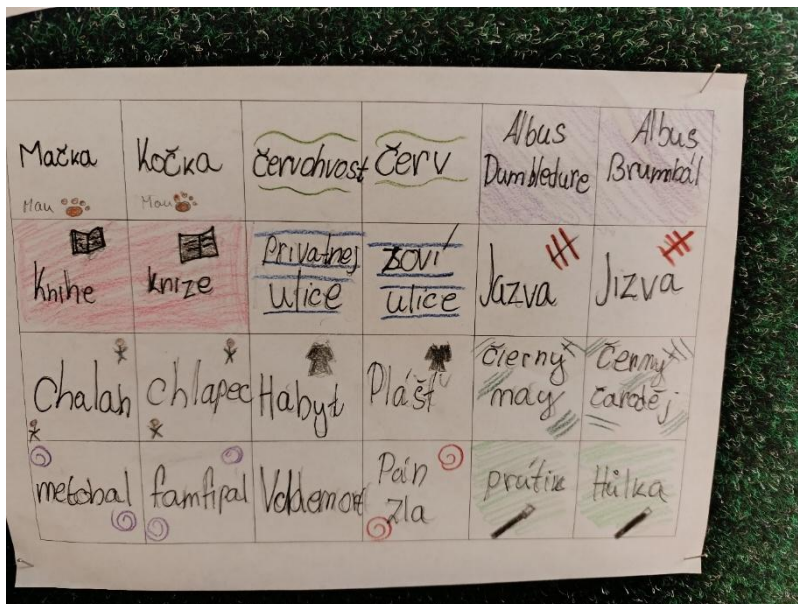 Mačka
Mau
Kočka
Mau
červohvost
červ
Albus
Dumbledure
Albus
Brumbál
Knihe
knize
Privatnej
ulice
zoví
ulice
Jazva
Jizva
Chalan
chlapec
Habyt
Plášť
čierny
may
Černý
čaroděj
metobal
famfrpal
Voldemort
Pán
Zla
prútik
Hůlka